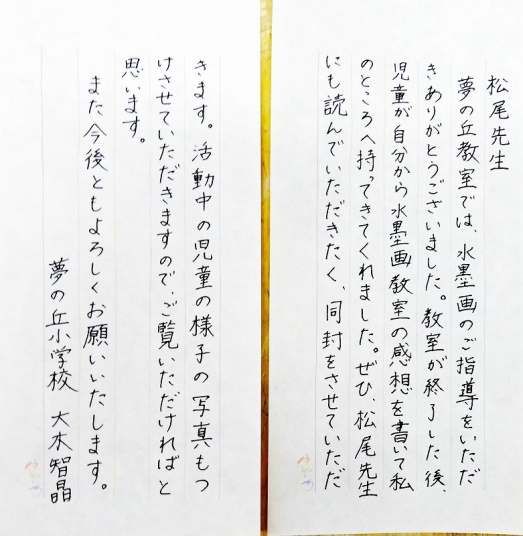 松尾先生
夢の丘教室では、水墨画のご指導をいただ
きありがとうございました。教室が終了した後、
児童が自分から水墨画教室の感想を書いて私
のところへ持ってきてくれました。ぜひ、松尾先生
にも読んでいただきたく、同封をさせていただ
きます。活動中の児童の様子の写真もつ
けさせていただきますので、ご覧いただければと
思います。
また今後ともよろしくお願いいたします。
夢の丘小学校 大木智晶